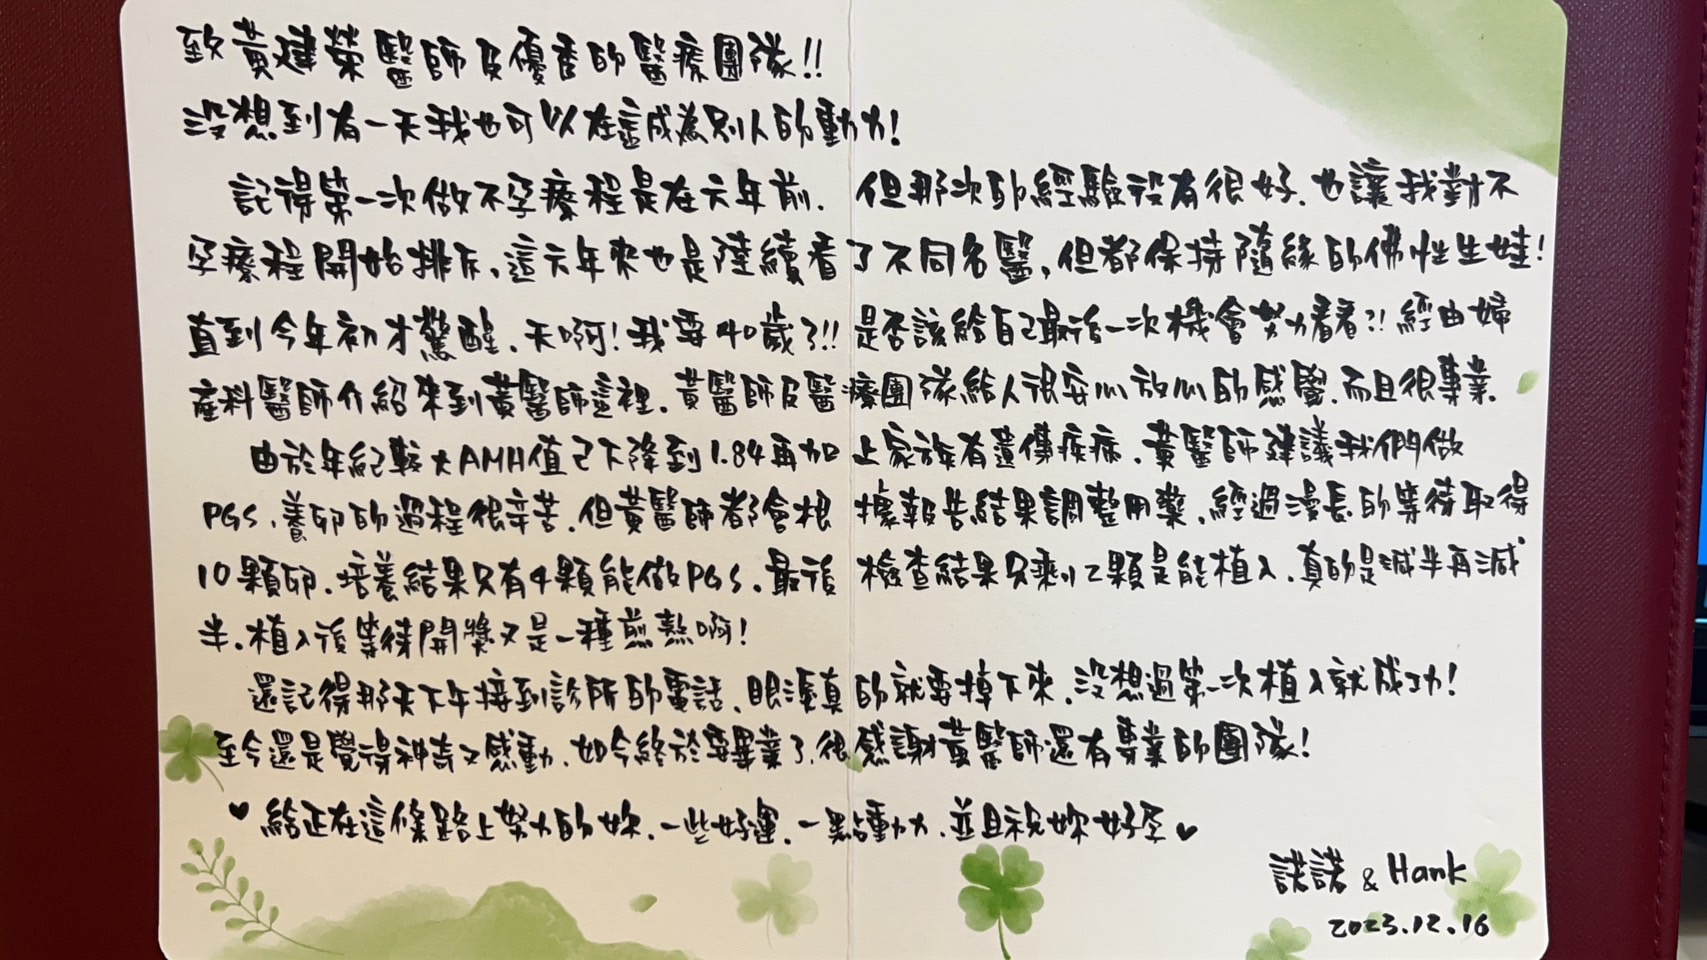 致黃建榮醫師及優秀的醫療團隊!!
沒想到有一天我也可以在這成為別人的動力!
記得第一次做不孕療程是在六年前.但那次的經驗沒有很好.也讓我對不
孕療程開始排斥.這六年來也是陸續看了不同名醫,但都保持隨緣的佛性生娃!
直到今年初才驚醒.天啊!我要40歲了!!是否該給自己最後一次機會努力看看?!經由婦
產科醫師介紹來到黃醫師這裡.黃醫師及醫療團隊給人很安心放心的感覺.而且很專業.
由於年紀較大AMH值已下降到1.84再加上家族有遺傳疾病.黃醫師建議我們做
PGS.養卵的過程很辛苦.但黃醫師都會根據報告結果調整用藥.經過漫長的等待取得
10顆卵.培養結果只有4顆能做PGS.最後檢查結果只剩2顆是能植入.真的是減半再減
半.植入後等待開獎又是一種煎熬啊!
還記得那天下午接到診所的電話.眼淚真的就要掉下來.沒想過第一次植入就成功!
至今還是覺得神奇又感動.如今終於要畢業了.很感謝黃醫師還有專業的團隊!
♥給正在這條路上努力的妳.一些好運.一點動力.並且祝妳好孕♥
諾諾 & Hank
2023.12.16